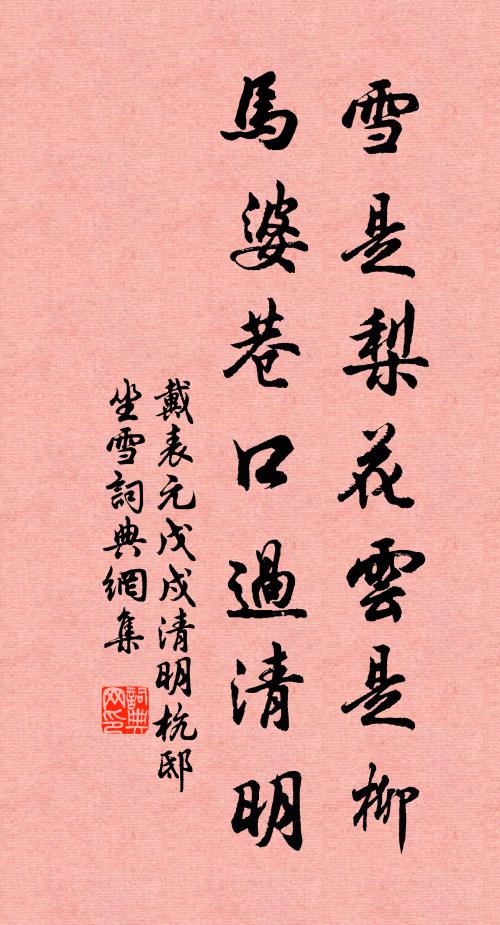 雪是梨花雲是柳
馬婆巷口過清明
戴表元戊戌清明杭邸
坐雪詞典網集
詞典網印